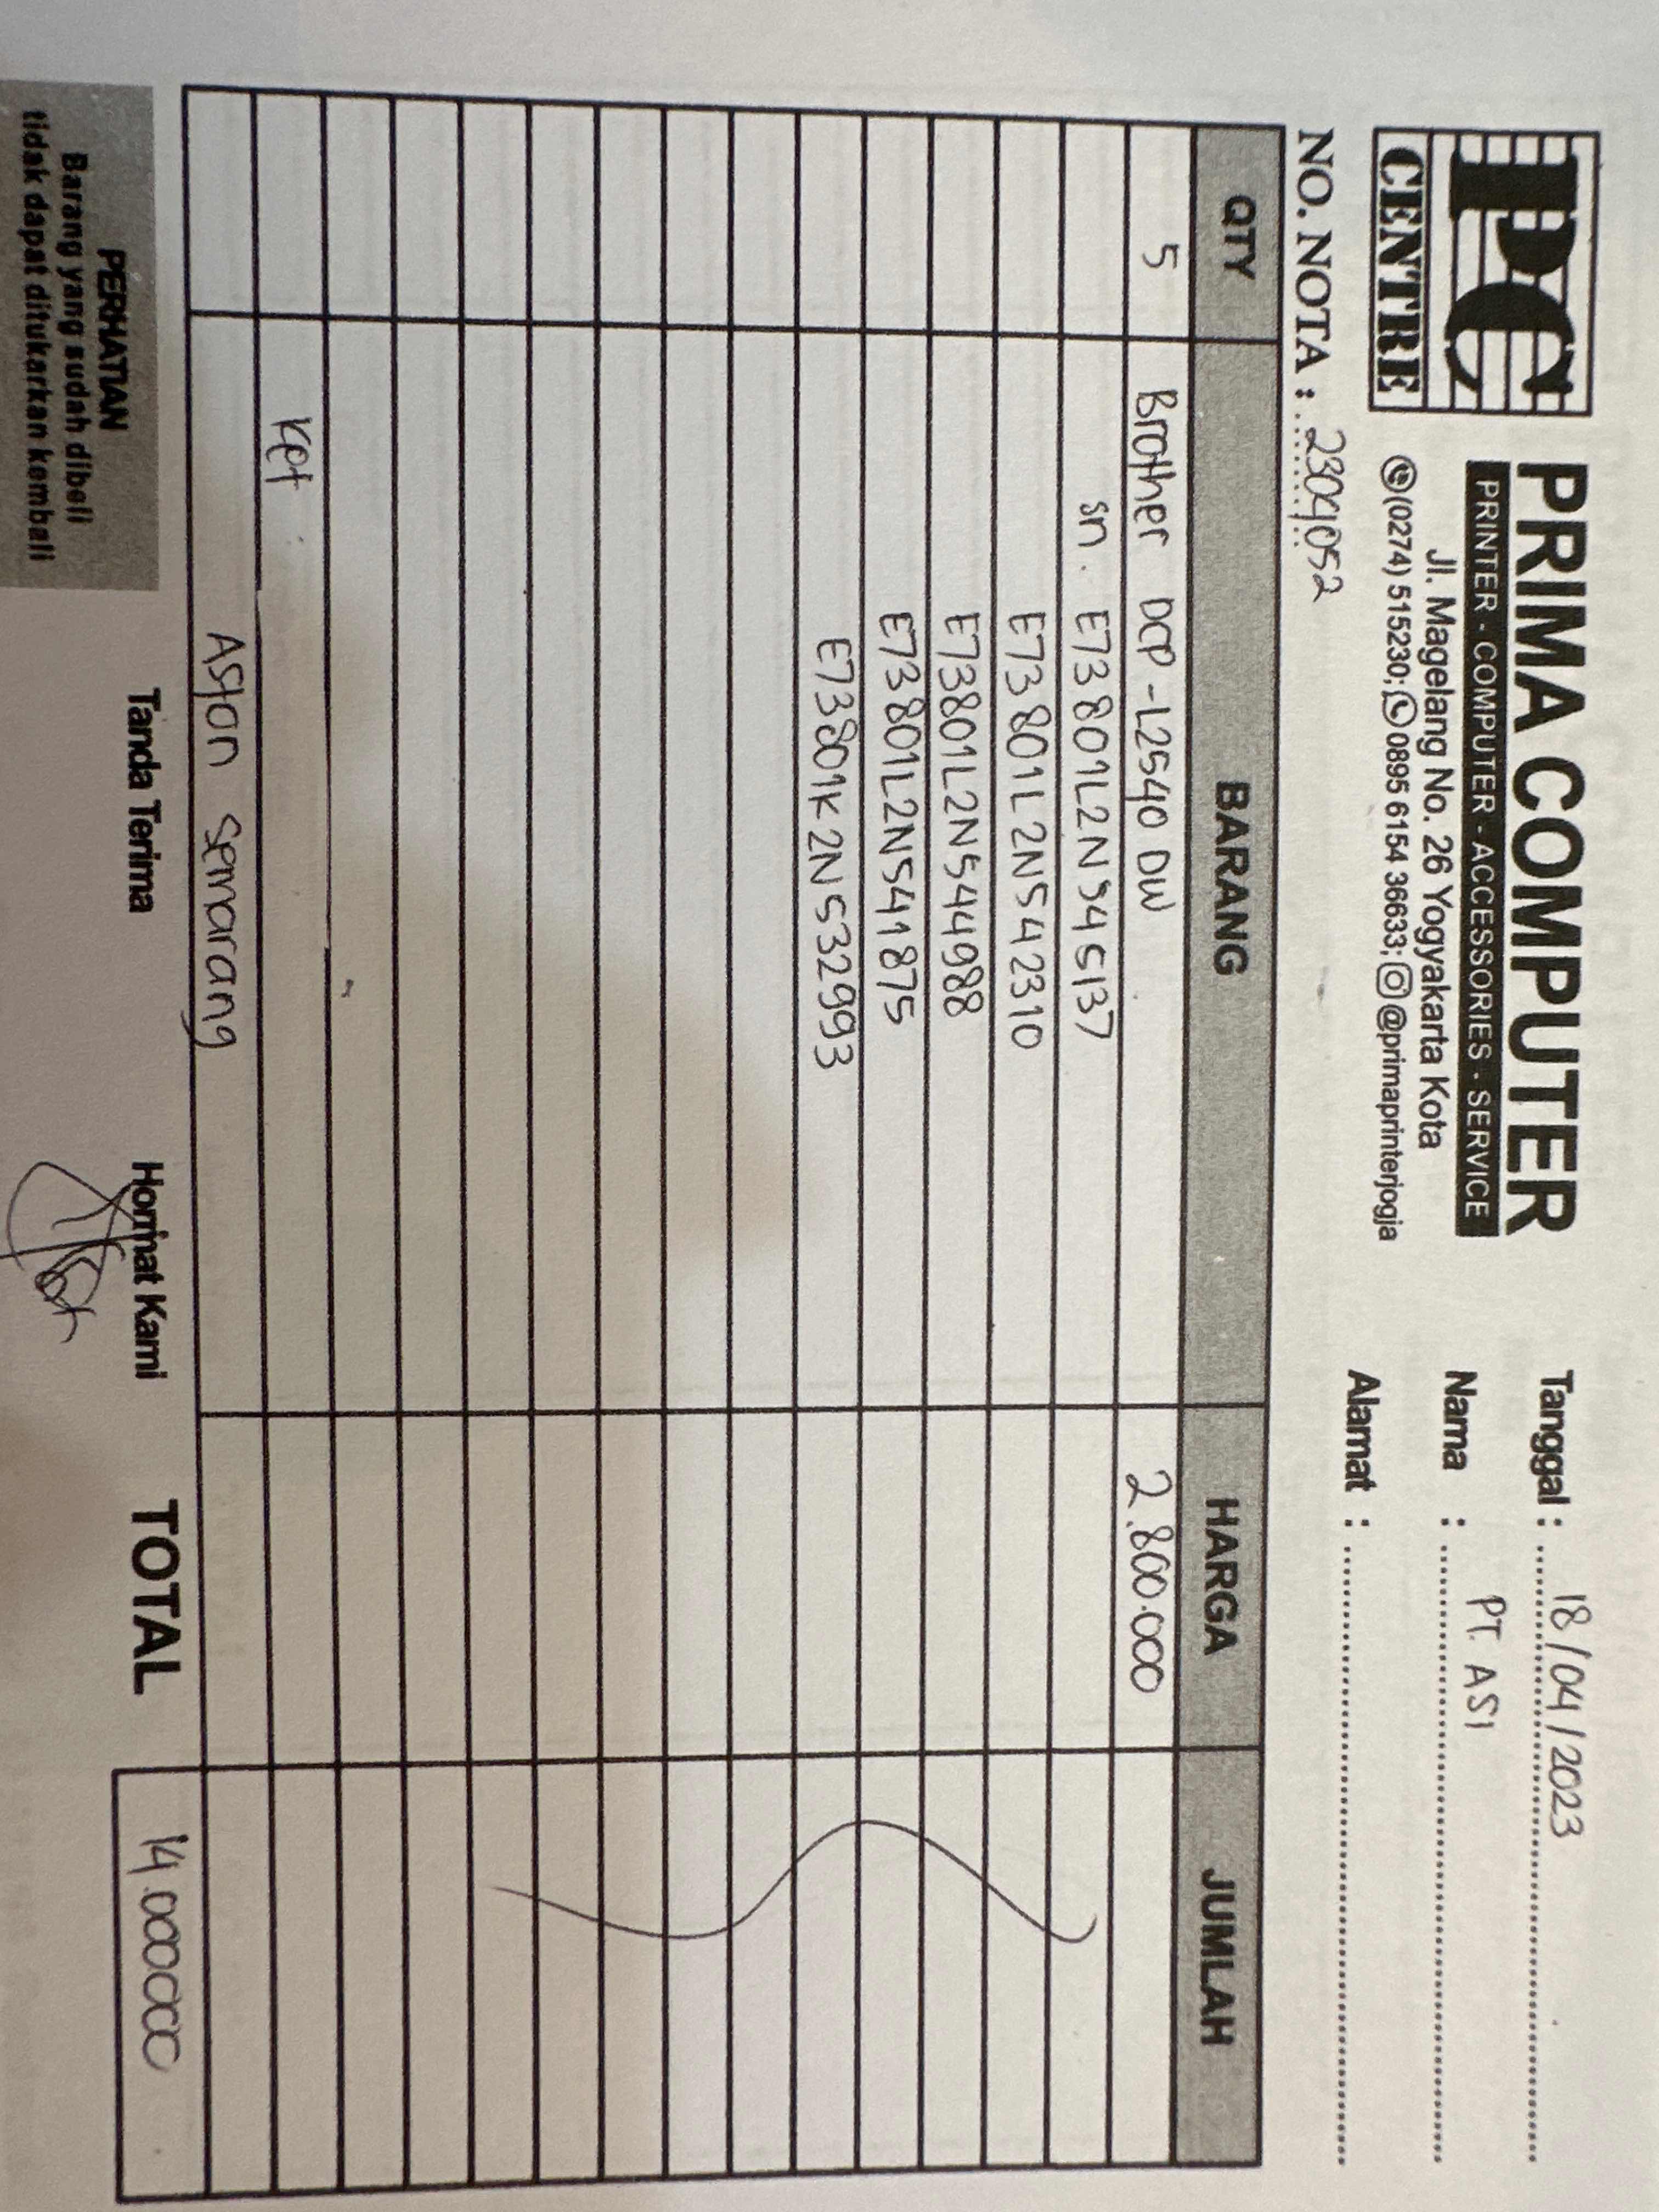 PC
CENTRE
PRIMA COMPUTER
PRINTER - COMPUTER - ACCESSORIES - SERVICE
Jl. Magelang No. 26 Yogyakarta Kota
(0274) 515230; 0895 6154 36633; @primaprinterjogja
Tanggal : 18/04/2023
Nama : PT. ASI
Alamat :
NO. NOTA : 2304052
QTY BARANG HARGA JUMLAH
5 Brother DCP-L2540 DW 2.800.000
sn. E73801L2N545137
E73801L2N542310
E73801L2N544988
E73801L2N541875
E73801K2N532993
Ket :
Aston Semarang
PERHATIAN
Barang yang sudah dibeli
tidak dapat ditukarkan kembali
Tanda Terima
Hormat Kami
TOTAL 14.000000